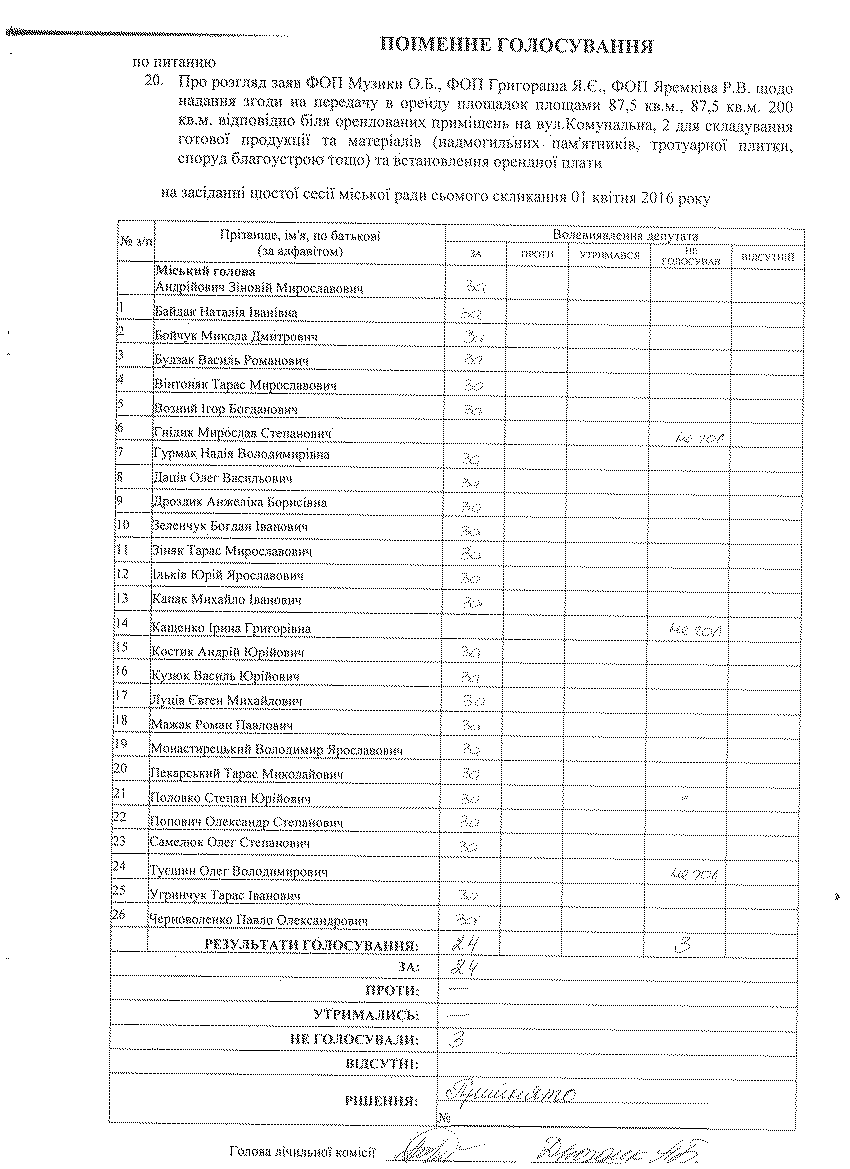 ПОІМЕННЕ ГОЛОСУВАННЯ
по питанню
20. Про розгляд заяв ФОП Музики О.Б., ФОП Григораша Я.Є., ФОП Яремківа Р.В. щодо
надання згоди на передачу в оренду площадок площами 87,5 кв.м., 87,5 кв.м. 200
кв.м. відповідно біля орендованих приміщень на вул.Комунальна, 2 для складування
готової продукції та матеріалів (надмогильних пам'ятників, тротуарної плитки,
споруд благоустрою тощо) та встановлення орендної плати
на засіданні шостої сесії міської ради сьомого скликання 01 квітня 2016 року
№ з/п Прізвище, ім'я, по батькові (за алфавітом) Волевиявлення депутата
ЗА ПРОТИ УТРИМАВСЯ НЕ ГОЛОСУВАВ ВІДСУТНІЙ
Міський голова
Андрійович Зіновій Мирославович за
1 Байдак Наталія Іванівна за
2 Бойчук Микола Дмитрович за
3 Будзак Василь Романович за
4 Вінтоняк Тарас Мирославович за
5 Возний Ігор Богданович за
6 Гнідик Мирослав Степанович не гол
7 Гурмак Надія Володимирівна за
8 Даців Олег Васильович за
9 Дроздик Анжеліка Борисівна за
10 Зеленчук Богдан Іванович за
11 Зіняк Тарас Мирославович за
12 Ільків Юрій Ярославович за
13 Капак Михайло Іванович за
14 Кащенко Ірина Григорівна не гол
15 Костик Андрій Юрійович за
16 Кузюк Василь Юрійович за
17 Луців Євген Михайлович за
18 Мажак Роман Павлович за
19 Монастирецький Володимир Ярославович за
20 Пекарський Тарас Миколайович за
21 Половко Степан Юрійович за
22 Попович Олександр Степанович за
23 Самелюк Олег Степанович за
24 Олег Володимирович не гол
25 Угринчук Тарас Іванович за
26 Черноволенко Павло Олександрович за
РЕЗУЛЬТАТИ ГОЛОСУВАННЯ: 24 3
ЗА: 24
ПРОТИ: —
УТРИМАЛИСЬ: —
НЕ ГОЛОСУВАЛИ: 3
ВІДСУТНІ:
РІШЕННЯ: Прийнято
№
Голова лічильної комісії